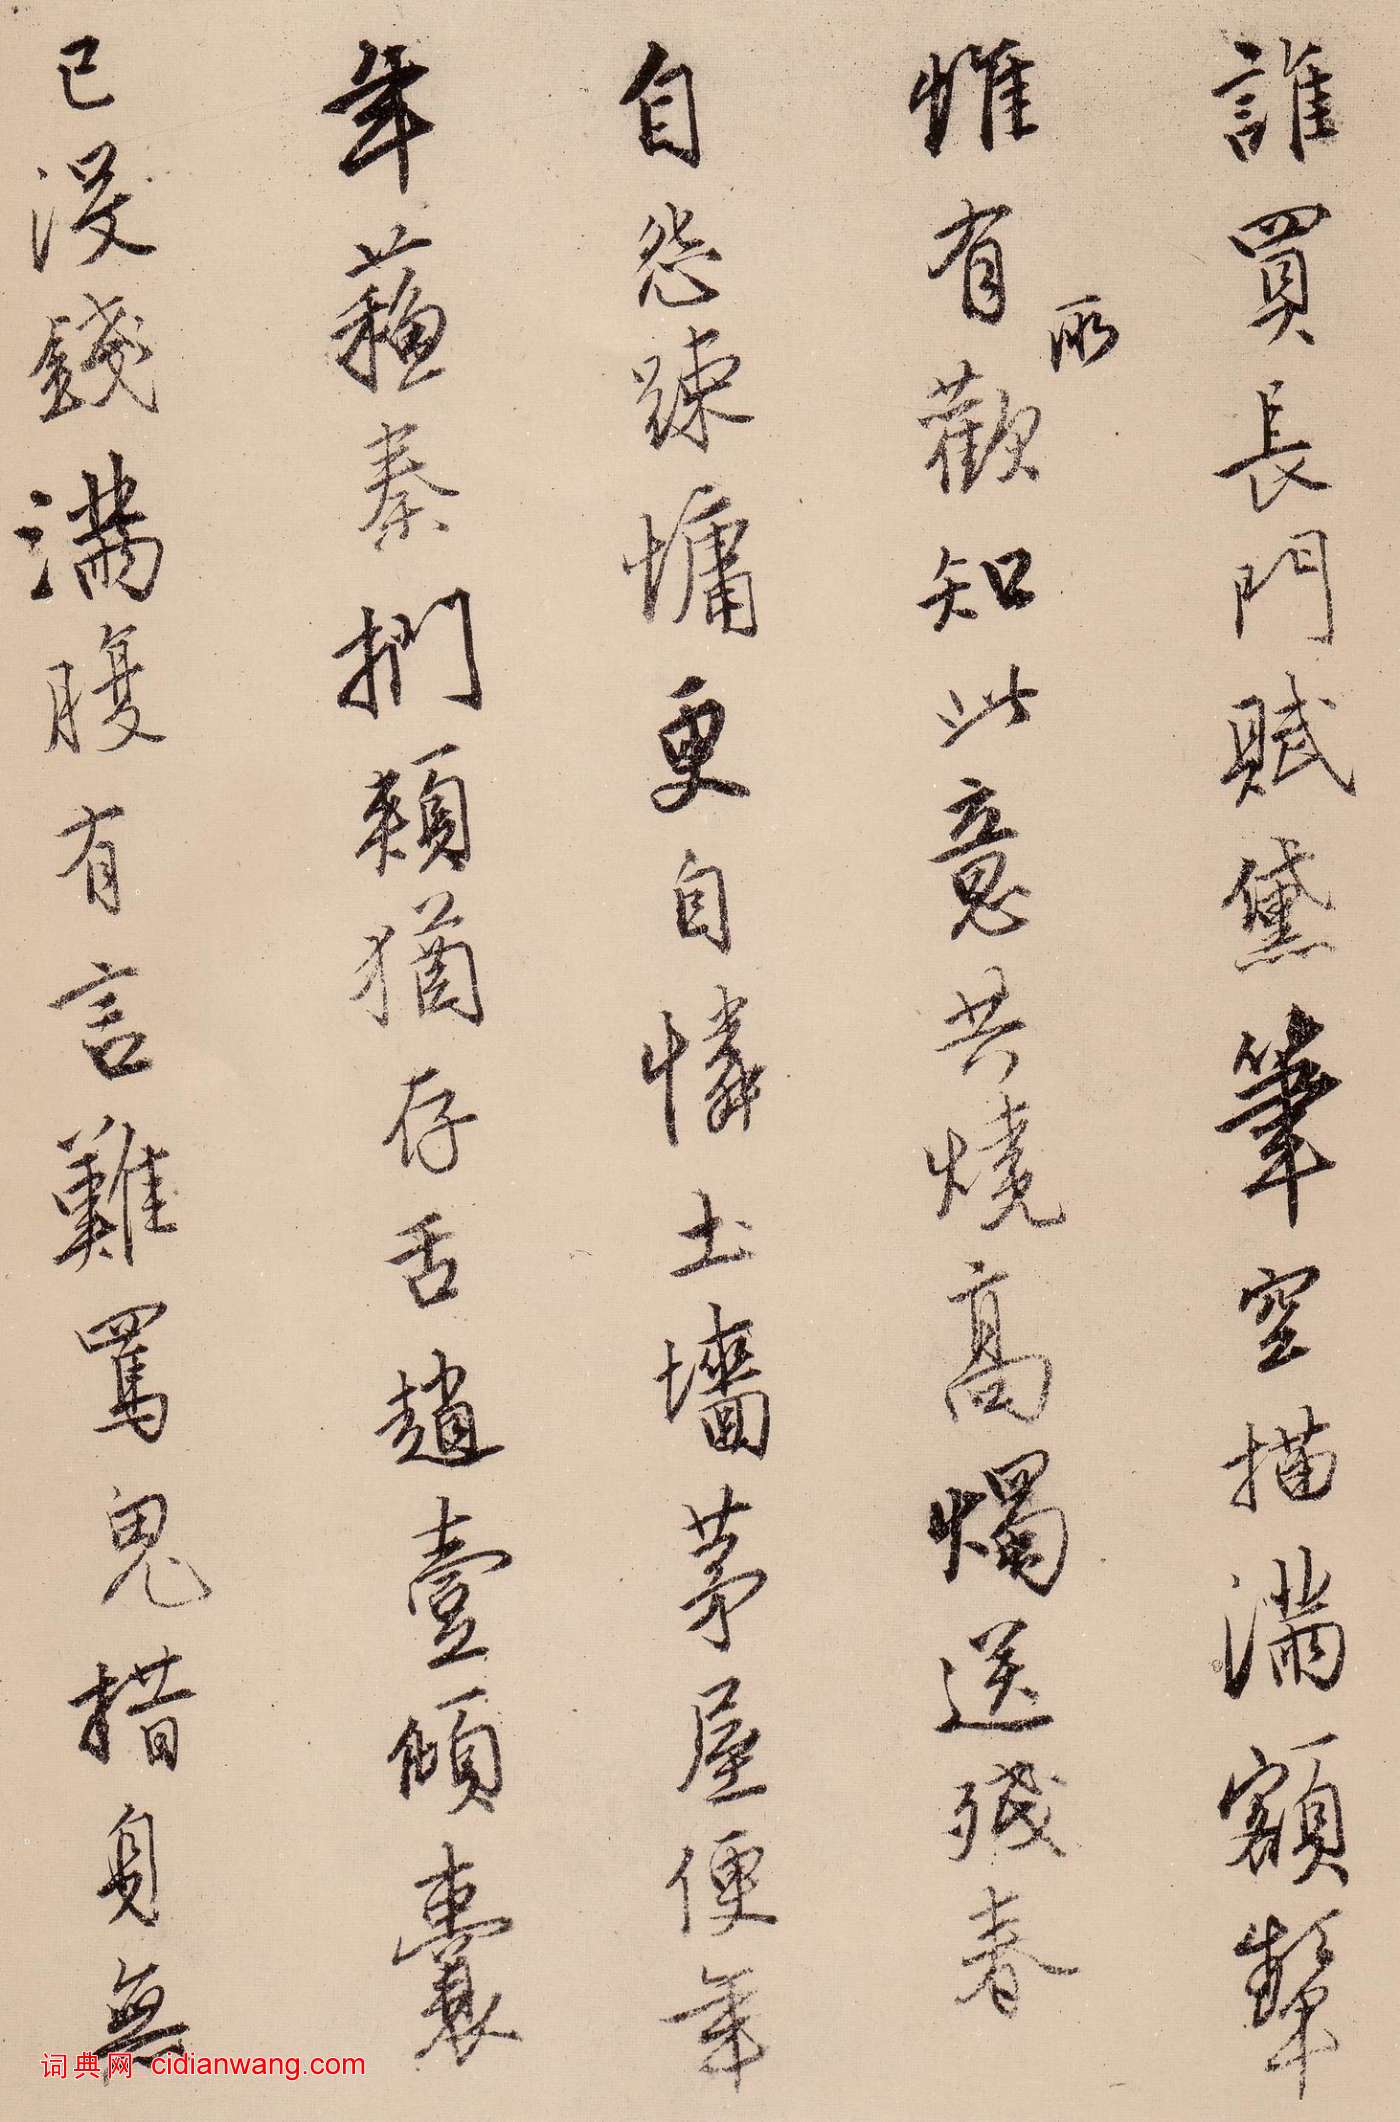 誰買長門賦黛筆空描滿額顰
惟有歡知此意共燒高燭送殘春
所
自怨疎慵更自憐土墻茅屋便年
年蘓秦捫頰猶存舌趙壹傾囊
已沒錢滿腹有言難罵鬼措身無
词典网 cidianwang.com